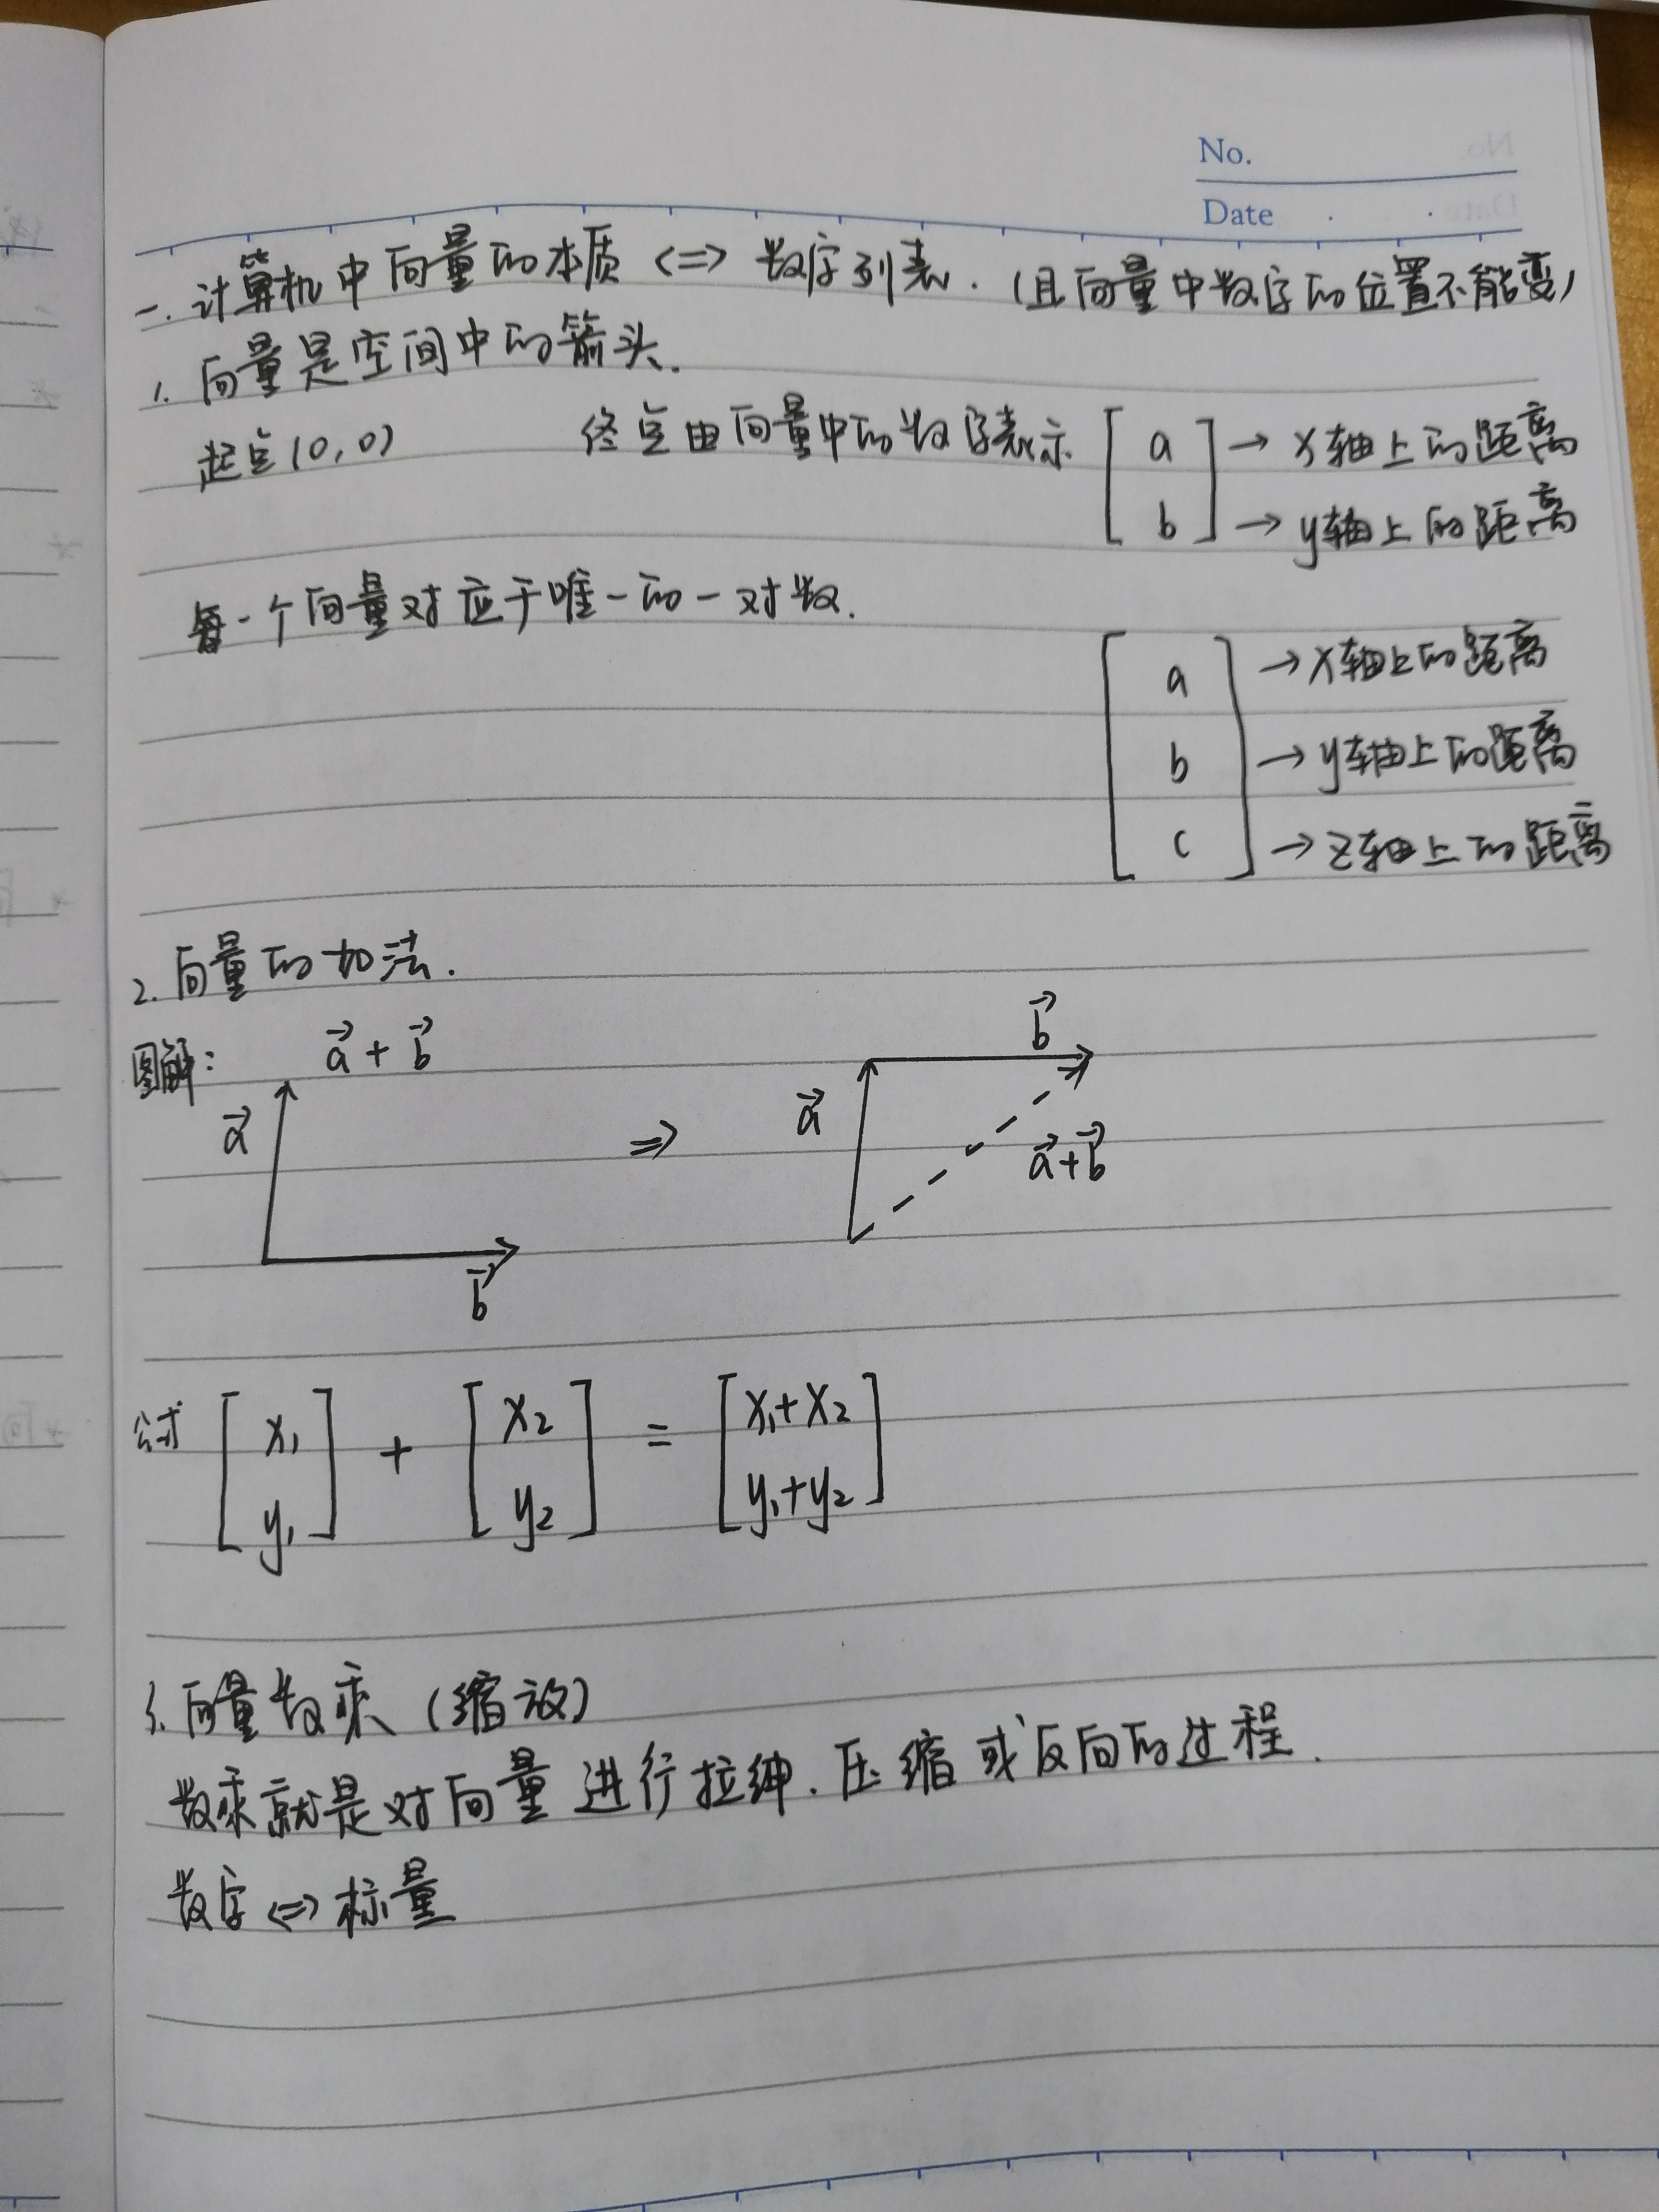 No.
Date
一. 计算机中向量的本质 <=> 数字列表. (且向量中数字的位置不能变)
1. 向量是空间中的箭头.
起点(0,0) 终点由向量中的数字表示 [a b] → x轴上的距离
→ y轴上的距离
每一个向量对应于唯一的一对数.
[a b c] → x轴上的距离
→ y轴上的距离
→ z轴上的距离
2. 向量的加法.
图解: a⃗ + b⃗
a⃗ b⃗ ⇒ a⃗ b⃗ a⃗+b⃗
公式 [x₁ y₁] + [x₂ y₂] = [x₁+x₂ y₁+y₂]
3. 向量数乘 (缩放)
数乘就是对向量进行拉绅. 压缩或反向的过程.
数字 <=> 标量